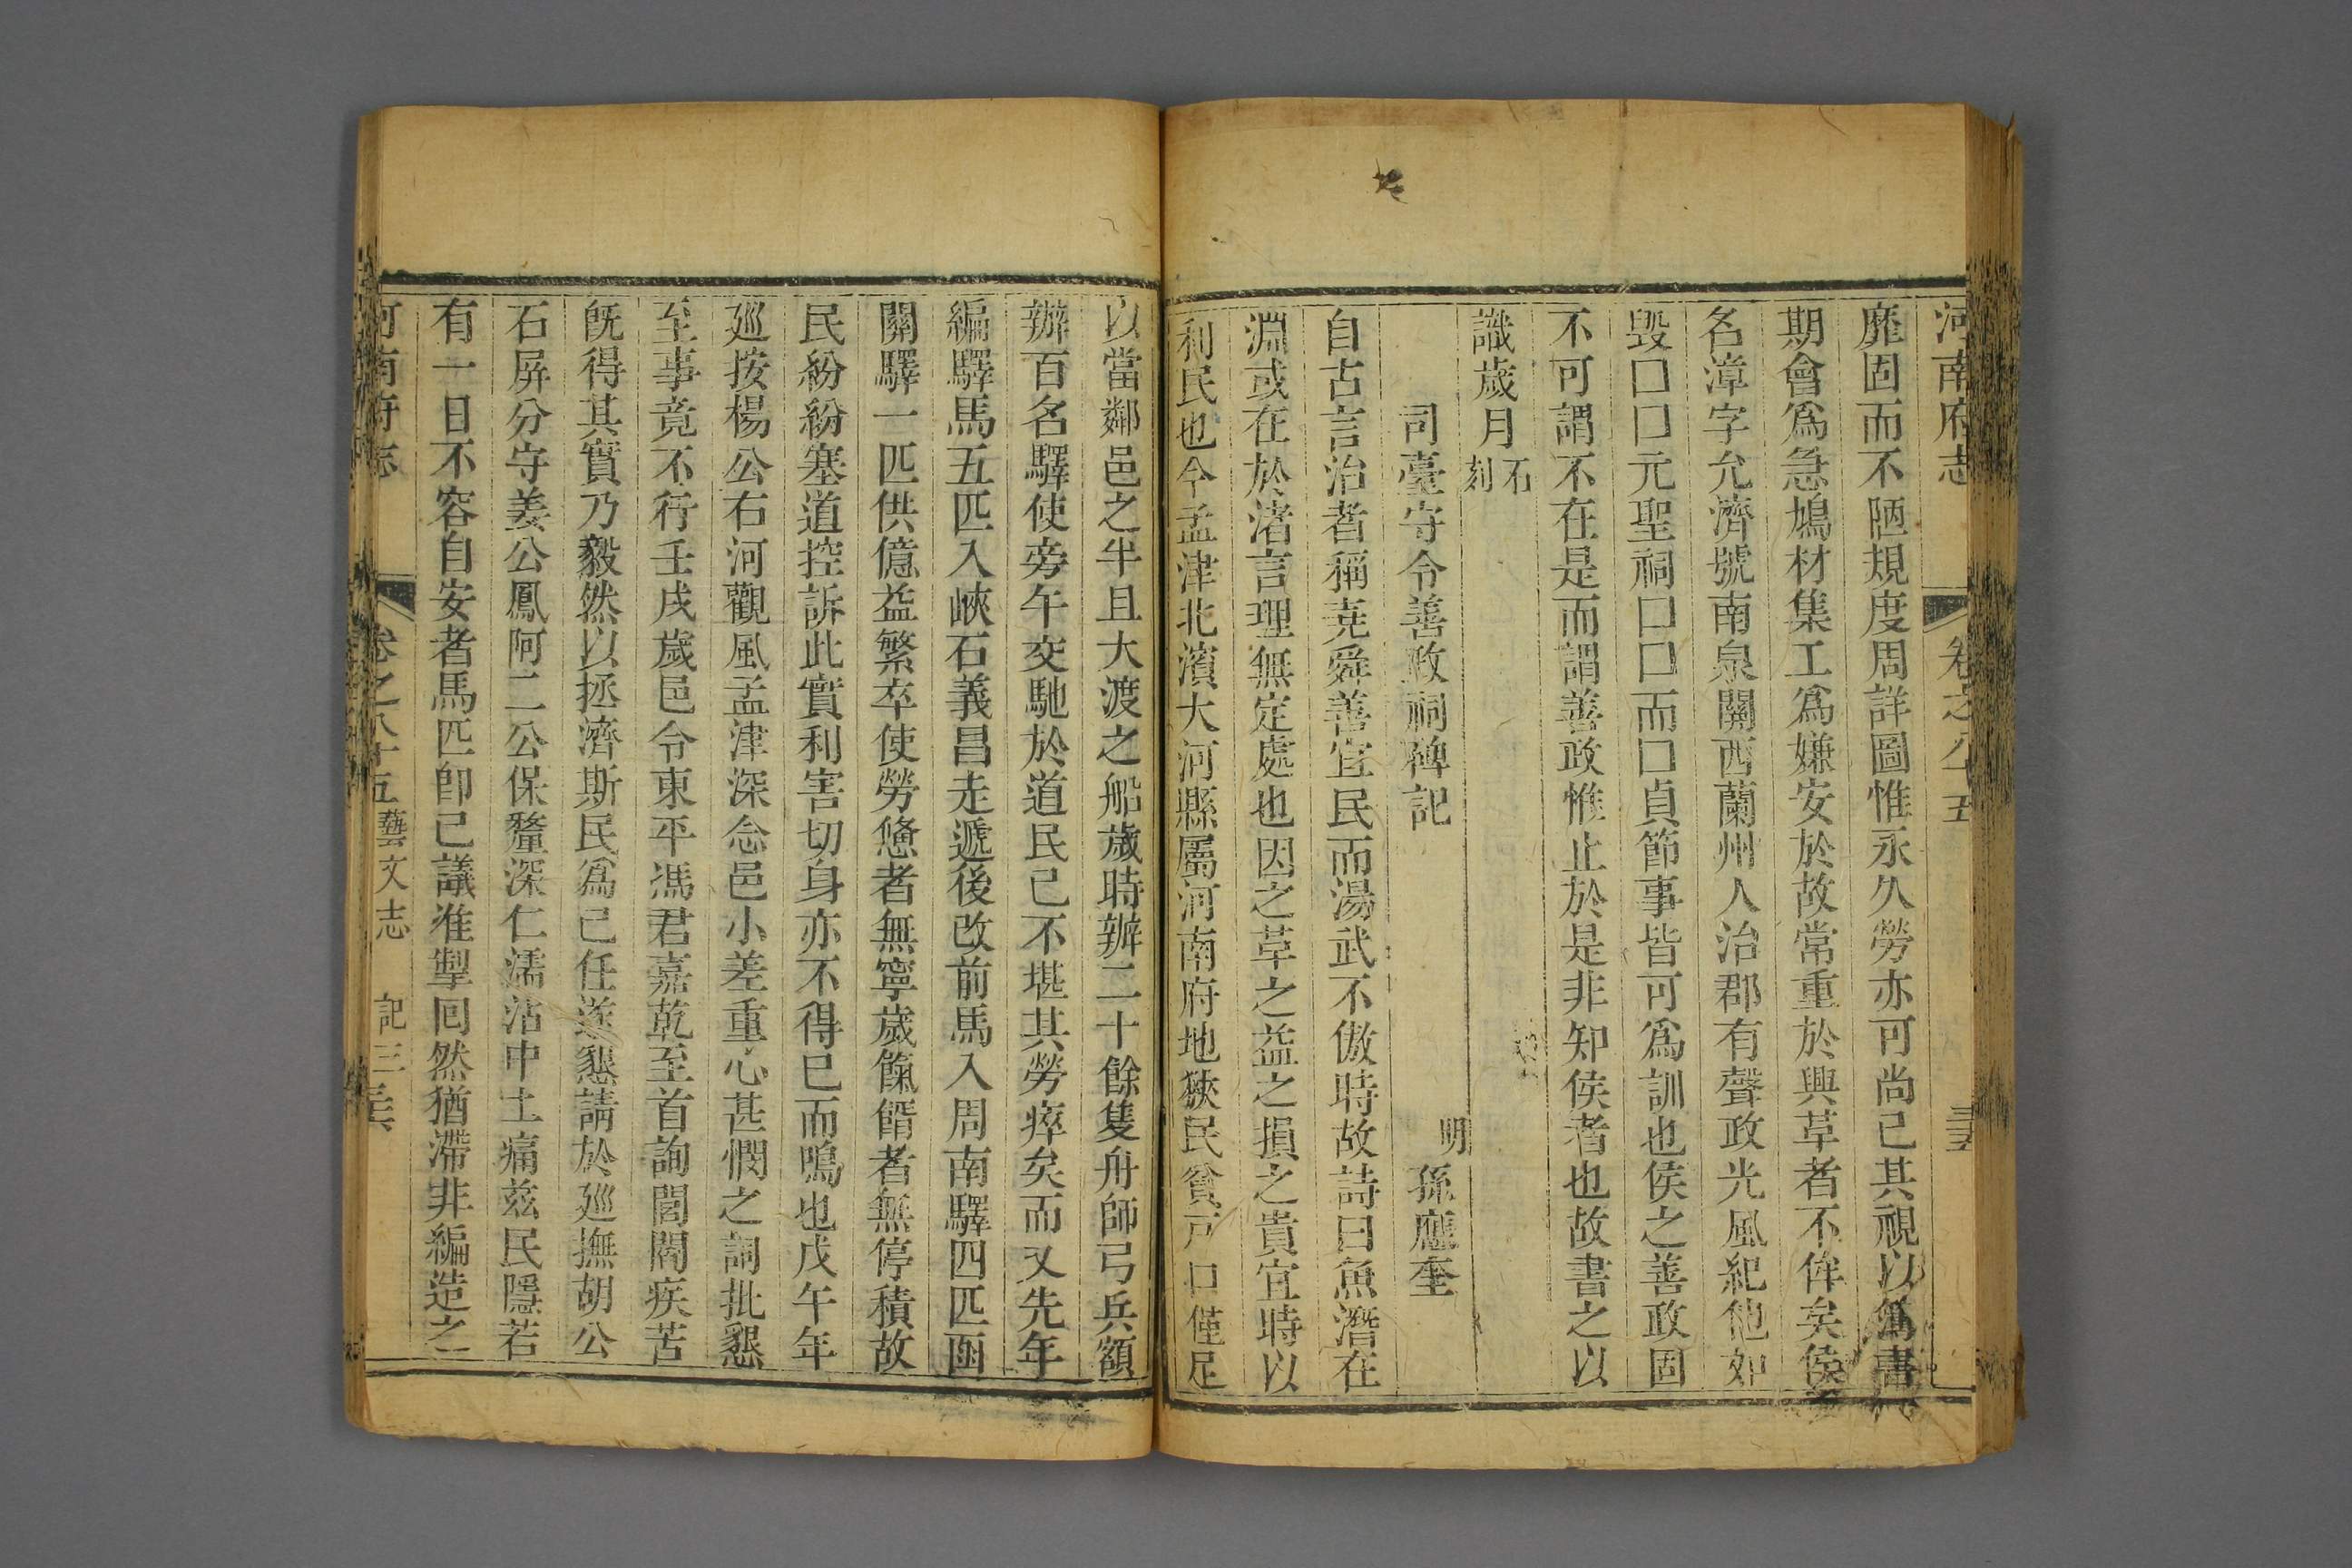 河南府志 卷之八十五
靡固而不陋規度周詳圖惟永久勞亦可尚已其視以爲書
期會爲急鳩材集工爲嫌安於故常重於興革者不侔矣侯
名漳字允濟號南泉關西蘭州人治郡有聲政光風紀他如
毀囗囗囗元聖祠囗囗而囗貞節事皆可爲訓也侯之善政固
不可謂不在是而謂善政惟止於是非知侯者也故書之以
識歲月石刻
司臺守令善政祠碑記 明 孫應奎
自古言治者稱堯舜善宜民而湯武不傲時故詩曰魚潛在
淵或在於渚言理無定處也因之革之益之損之貴宜時以
利民也今孟津北濱大河縣屬河南府地狹民貧戸口僅足
以當鄰邑之半且大渡之船歲時辦二十餘隻舟師弓兵額
辦百名驛使旁午交馳於道民已不堪其勞瘁矣而又先年
編驛馬五匹入峽石義昌走遞後改前馬入周南驛四匹函
關驛一匹供億益繁卒使勞憊者無寧歲餼餼者無停積故
民紛紛塞道控訴此實利害切身亦不得已而鳴也戊午年
廵按楊公右河觀風孟津深念邑小差重心甚憫之詞批懇
至事竟不行壬戌歲邑令東平馮君嘉乾至首詢閭閻疾苦
旣得其實乃毅然以拯濟斯民爲己任遂懇請於廵撫胡公
石屏分守姜公鳳阿二公保釐深仁濡沾中土痛茲民隱若
有一日不容自安者馬匹卽已議准掣囘然猶滯非編造之
河南府志 卷之八十五 藝文志 記三